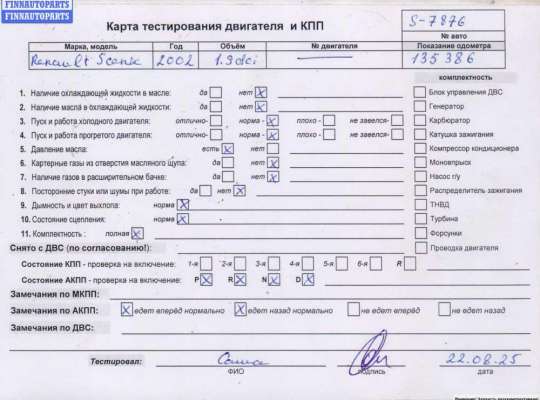 FINNAUTOPARTS
FINNAUTOPARTS
Карта тестирования двигателя и КПП
S-7876
№ авто
Марка, модель Год Объём № двигателя Показание одометра
Renault Scenic 2002 1.9dci 135386
комплектность
1. Наличие охлаждающей жидкости в масле: да нет X
Блок управления ДВС
2. Наличие масла в охлаждающей жидкости: да нет X
Генератор
3. Пуск и работа холодного двигателя: отлично- норма - X плохо - не завелся-
Карбюратор
4. Пуск и работа прогретого двигателя: отлично- норма - X плохо - не завелся-
Катушка зажигания
5. Давление масла: есть X нет
Компрессор кондиционера
6. Картерные газы из отверстия масляного щупа: да нет X
Моновпрыск
7. Наличие газов в расширительном бачке: да нет X
Насос г/у
8. Посторонние стуки или шумы при работе: да нет X
Распределитель зажигания
9. Дымность и цвет выхлопа: норма X
ТНВД
10. Состояние сцепления: норма X
Турбина
11. Комплектность : полная X
Форсунки
Снято с ДВС (по согласованию!):
Проводка двигателя
Состояние КПП - проверка на включение: 1-я 2-я 3-я 4-я 5-я 6-я R
Состояние АКПП - проверка на включение: P X R X N X D X
Замечания по МКПП:
Замечания по АКПП: X едет вперёд нормально X едет назад нормально не едет вперёд не едет назад
Замечания по ДВС:
Тестировал: Саша 22.08.25
ФИО подпись дата